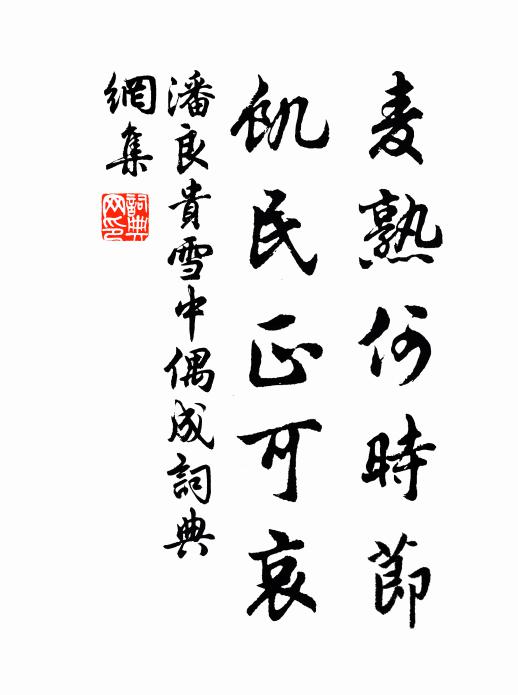 麦熟何時節
飢民正可哀
潘良貴雪中偶成詞典
網集
詞典網印